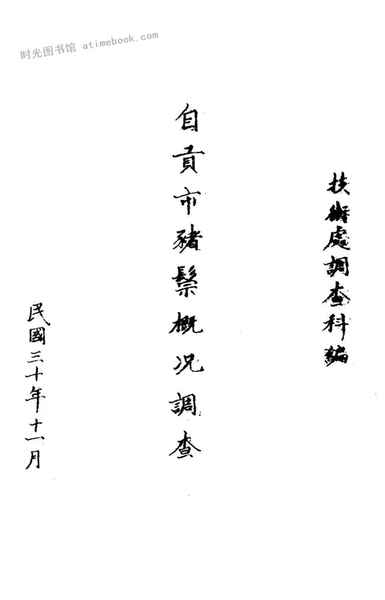 时光图书馆 atimebook.com
技術處調查科編
自貢市豬鬃概况調查
民國三十年十一月